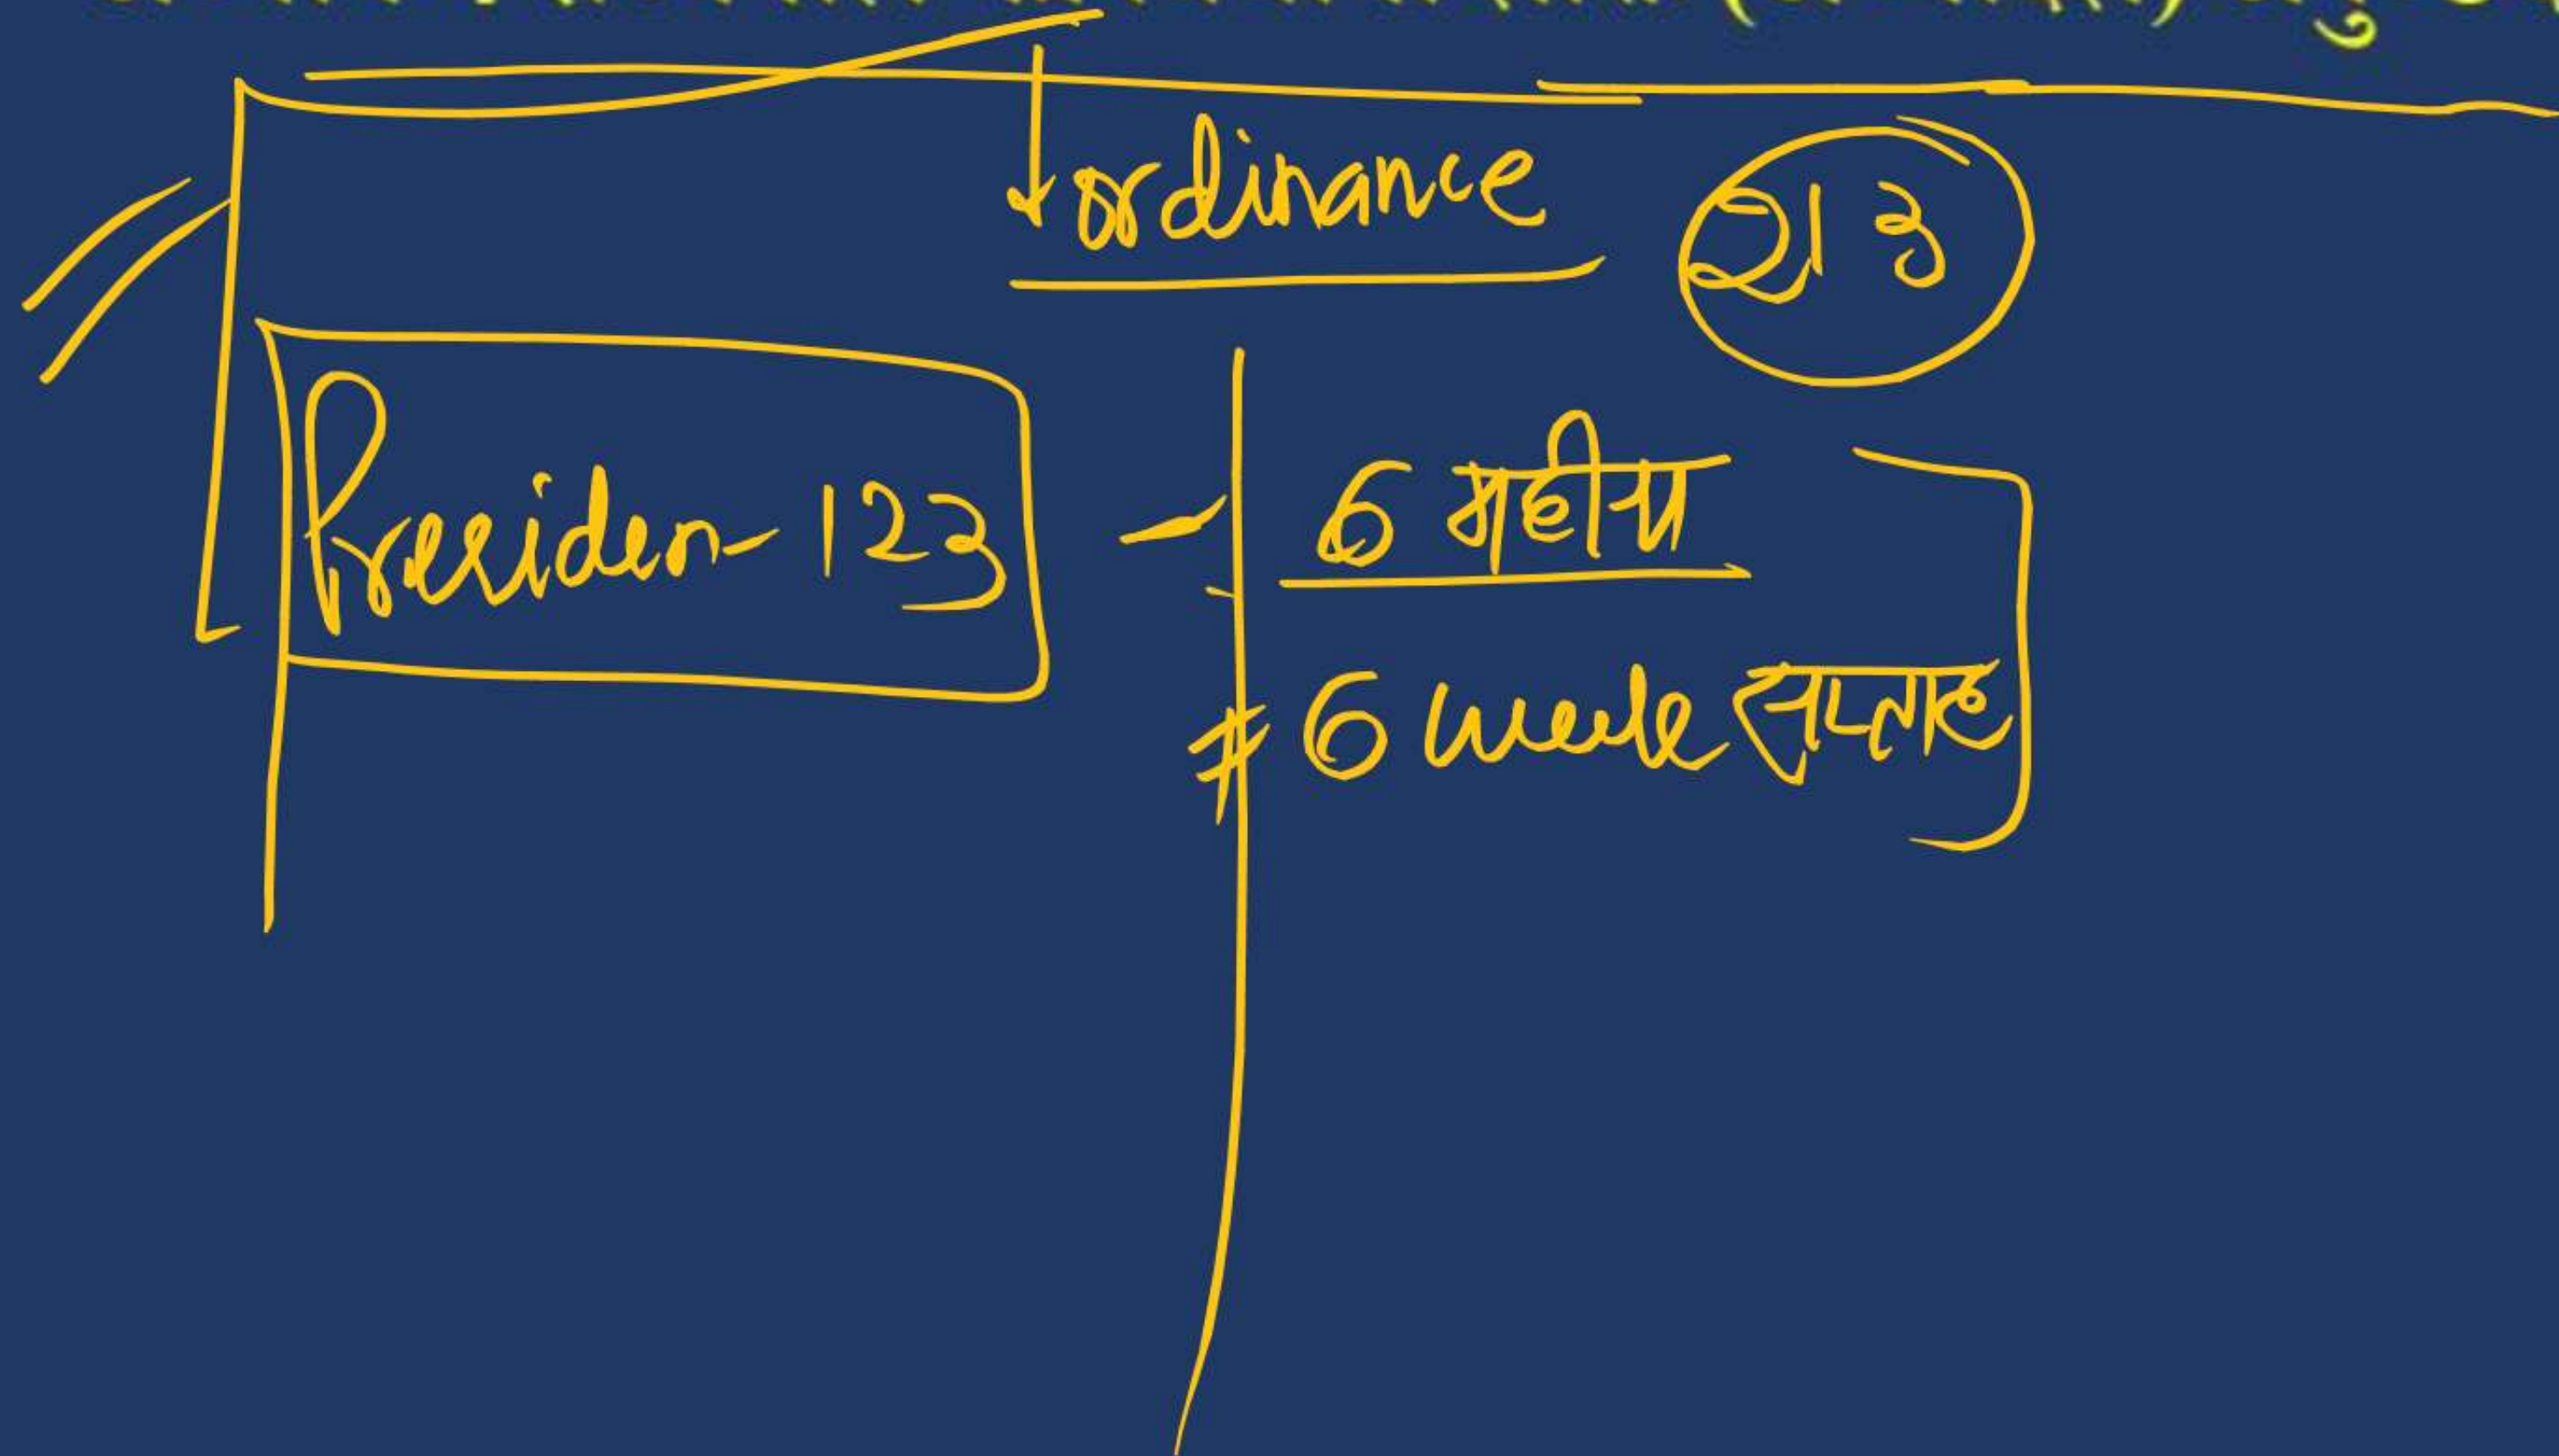 ordinance 213
Presiden- 123 - 6 महीना
# 6 week सप्ताह